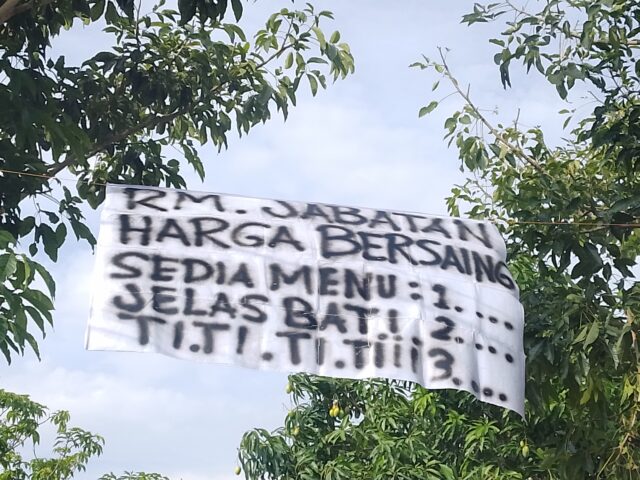 RM. JABATAN
HARGA BERSAING
SEDIA MENU : 1....
JELAS BATI 2....
TI.TI.TI.Tiiii 3....